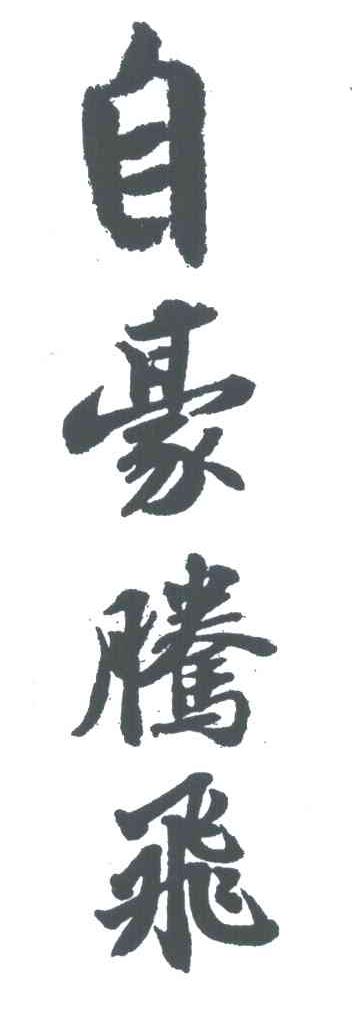 自豪騰飛